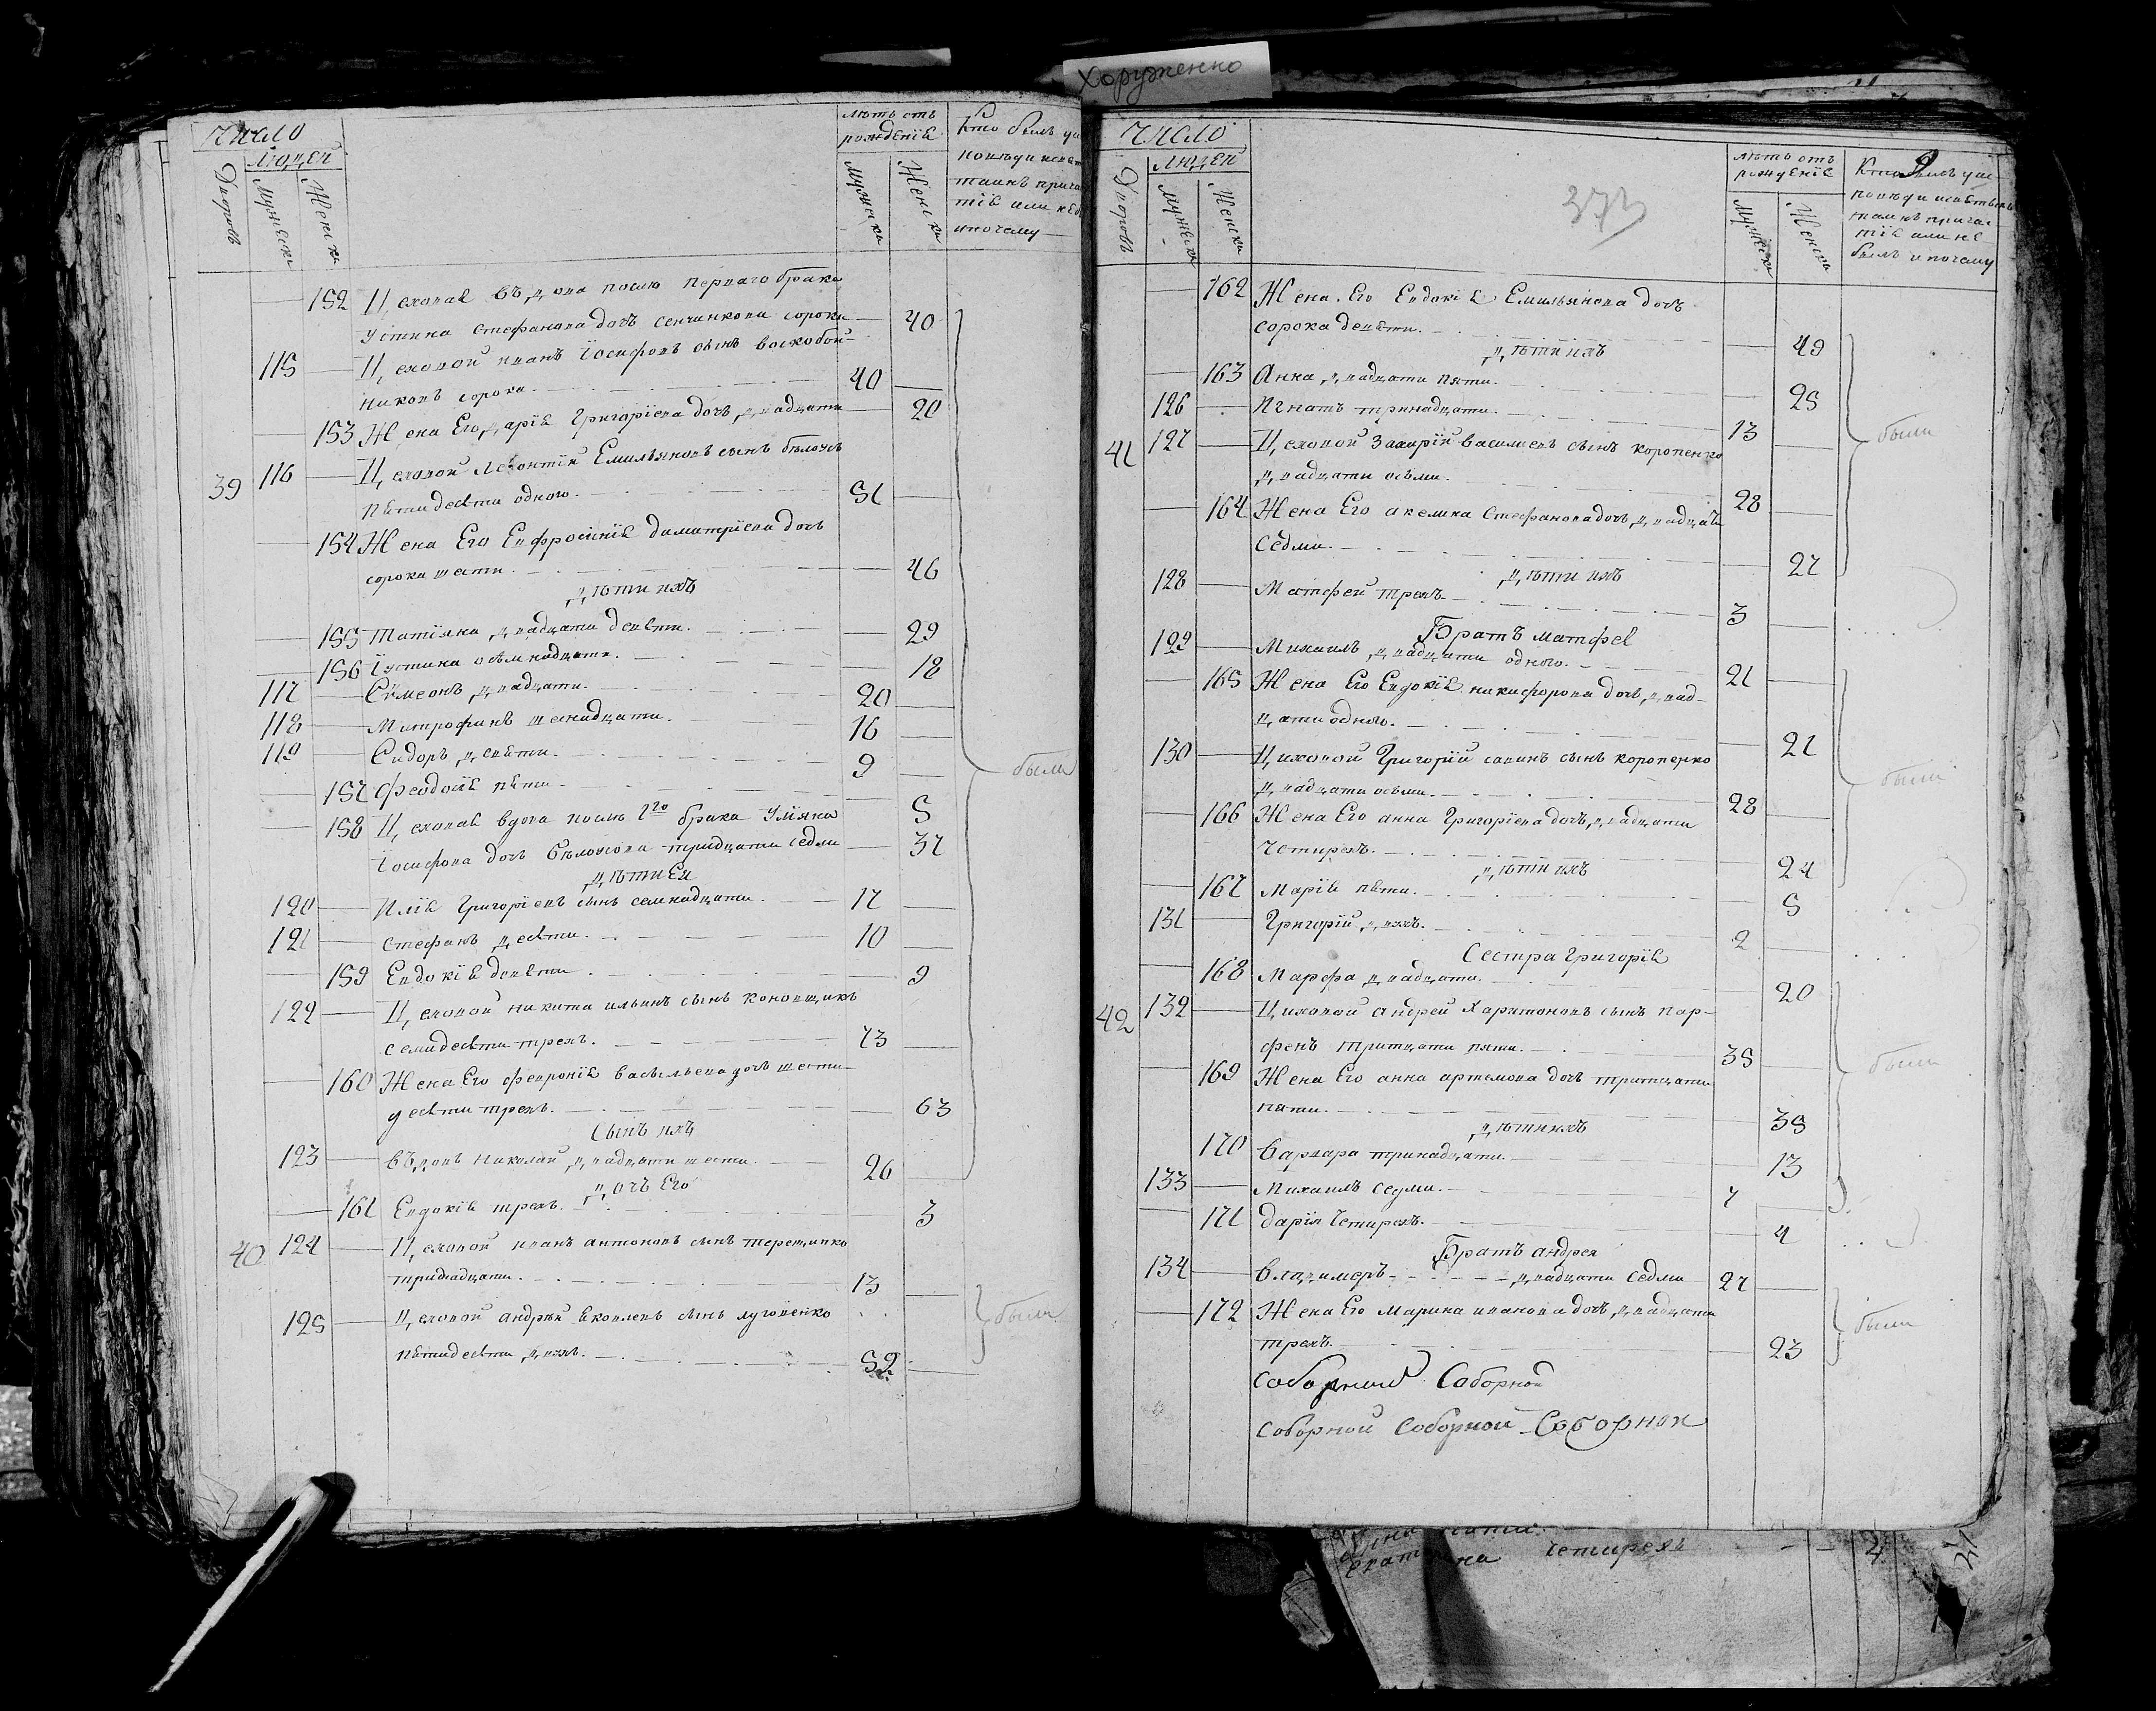 Хоруженко
Число
Людей
Дворовъ
Мужеска
Женска
лѣтъ отъ
рожденїя
мужеска
Женска
Кто былъ у
исповѣди и свят
таинъ прича
тїя или не б
и почему
152 Ц, еховая въ,д,ова послю перваго брака
устина Стефанова дочъ Сенчинкова сорока 40
115 Ц, еховой иванъ Їосифовъ сынъ воскобой-
никовъ сорока. 40
153 Жена Его,д,арїя Григорїева дочъ,д,вадцати 20
39 116 Ц, еховой Леонтїй Емильяновъ сынъ бѣлоусъ
пятидесяти одного. 51
154 Жена Его Евфросїнїя Димитрїева дочъ
сорока шести. 46
,д,ѣти ихъ
155 татїяна ,д,вадцати девяти. 29
156 Їустина осѣмнадцати. 18
117 Сѷмеонъ ,д,вадцати. 20
118 Митрофанъ шеснадцати. 16
119 Сидоръ ,д,евяти. 9
157 Феодосїя пяти 5
158 Ц, еховая вдова послю 1го брака Улїяна
Їосифова дочъ бѣлоусова тридцати седми 37
,д,ѣти Ея
120 Илїя Григорїевъ сынъ семнадцати. 17
121 стефанъ ,д,есяти. 10
159 Евдокїя девяти. 9
были
122 Ц, еховой никита ильинъ сынъ коновщикъ
семидесяти трехъ. 73
160 Жена Его февронїя васильева дочъ шести-
десяти трехъ. 63
Сынъ ихъ
123 въ,д,овъ николай ,д,вадцати шести. 26
,д,очъ Его
161 Евдокїя трехъ. 3
40 124 Ц, еховой иванъ антоновъ сынъ терещинко
тринадцати. 13
125 Ц, еховой андрѣй Яковлевъ сынъ луговенко
пятидесяти ,д,вухъ. 52
были
Число
Людей
Дворовъ
Мужеска
Женска
373
лѣтъ отъ
рожденїя
мужеска
Женска
9
Кто былъ у ис-
повѣди и святыхъ
таинъ причас-
тїя или не
былъ и почему
162 Жена Его Евдокїя Емильянова дочъ
сорока девяти. 49
,д,ѣти ихъ
163 Анна ,д,вадцати пяти. 25
126 Игнатъ тринадцати. 13
были
41 127 Ц, еховой Захарїй василиевъ сынъ коропенко
,д,вадцати осьми. 28
164 Жена Его акемна Стефанова дочъ ,д,вадцать
Седми. 27
,д,ѣти ихъ
128 Матфей трехъ. 3
Братъ матфея
129 Михаилъ ,д,вадцати одного. 21
165 Жена Его Евдокїя никифорова дочъ ,д,вад-
ц, ати одного. 21
130 Ц, иховой Григорїй савинъ сынъ коропенко
,д,вадцати осьми. 28
были
166 Жена Его анна Григорїева дочъ ,д,вадцати
четирехъ. 24
,д,ѣти ихъ
167 Марїя пяти. 5
131 Григорїй ,д,вухъ. 2
Сестра Григорїя
168 Марфа ,д,вадцати. 20
42 132 Ц, иховой андрей Харитоновъ сынъ пар-
фенъ тритцати пяти. 35
были
169 Жена Его анна артемова дочъ тритцати
пяти. 35
,д,ѣти ихъ
170 варвара тринадцати. 13
133 Михаилъ седми. 7
171 дарїя четирехъ. 4
Братъ андрея
134 владимеръ ,д,вадцати седми 27
172 Жена Его Марина иванова дочъ ,д,вадцати
трехъ. 23
были
Соборной Соборной
Соборной Соборной Соборноя
четирехъ 4